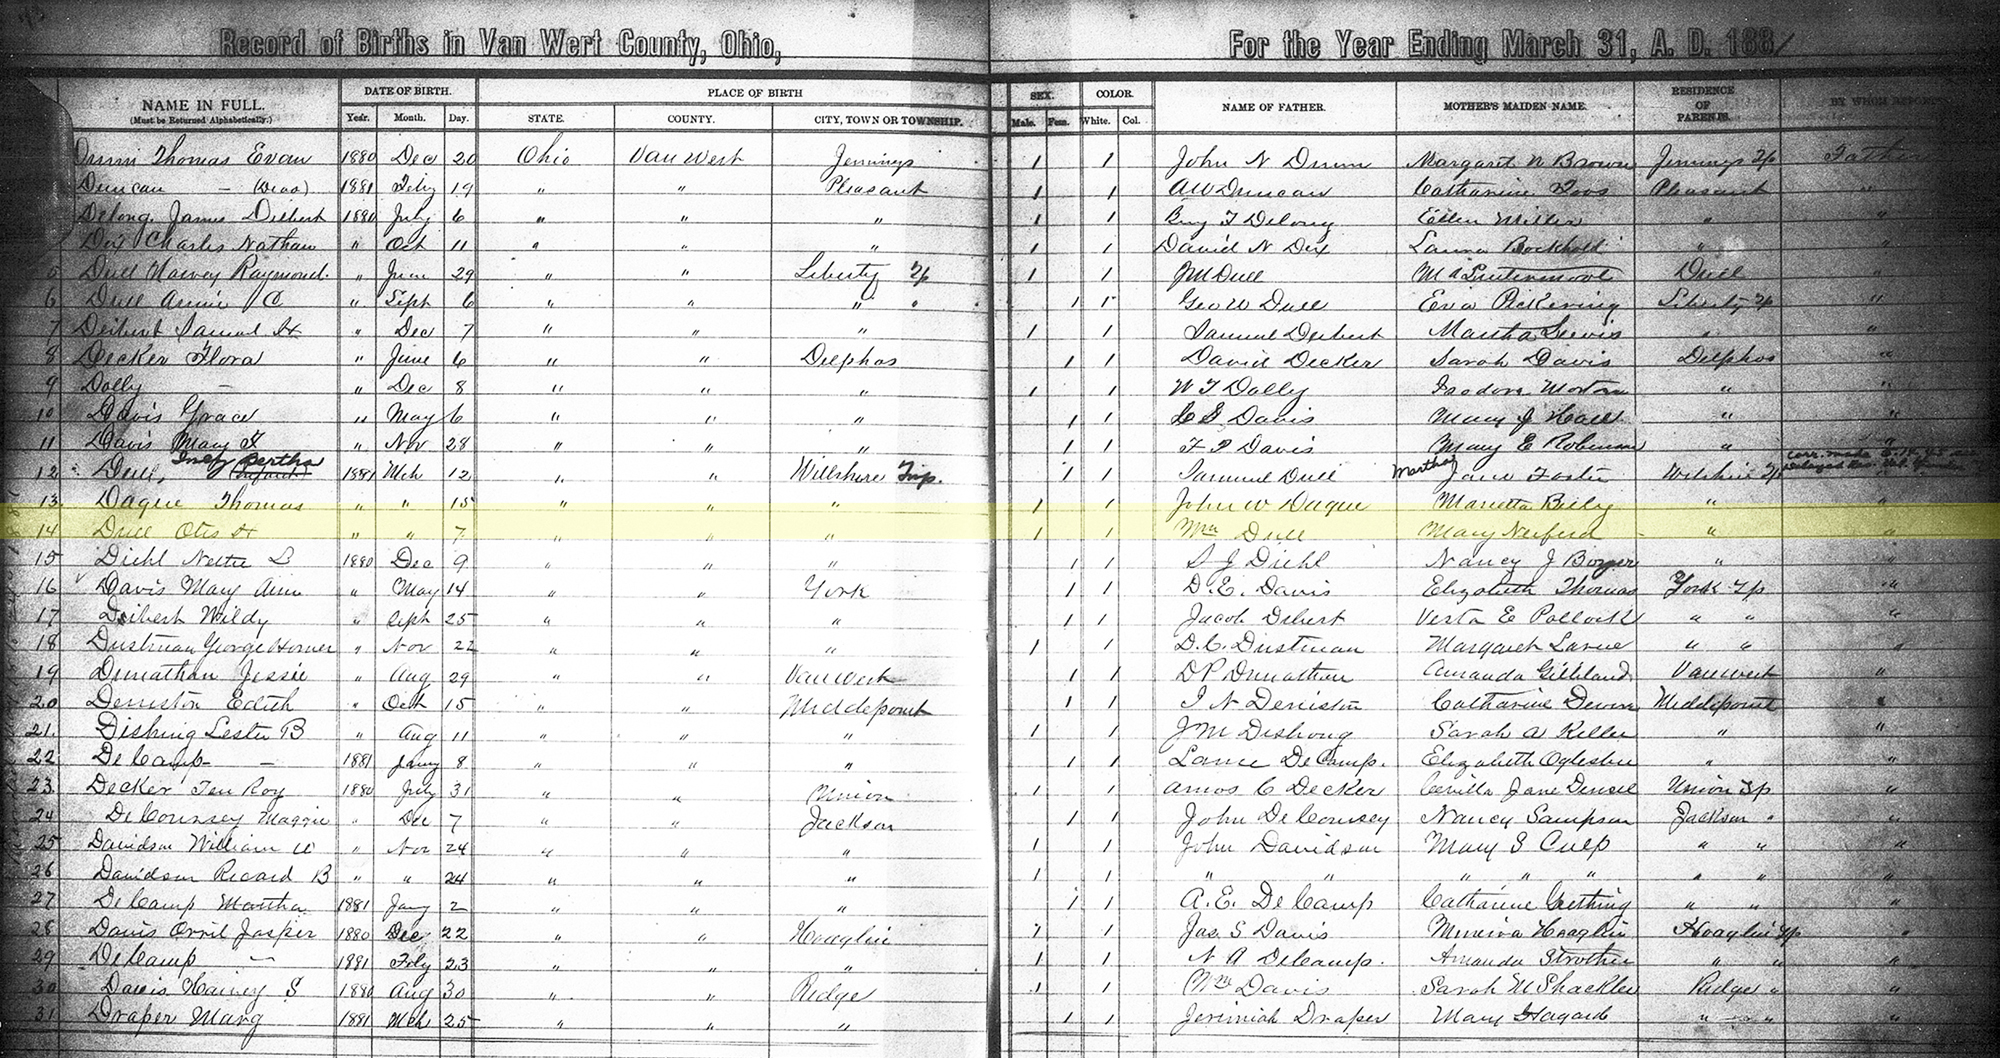 Record of Births in Van Wert County, Ohio, For the Year Ending March 31, A. D. 1881
NAME IN FULL. DATE OF BIRTH. PLACE OF BIRTH SEX. COLOR. NAME OF FATHER. MOTHER'S MAIDEN NAME. RESIDENCE OF PARENTS. BY WHOM REPORTED
(Must be Returned Alphabetically.) Year. Month. Day. STATE. COUNTY. CITY, TOWN OR TOWNSHIP. Male. Fem. White. Col.
Thomas Evan 1880 Dec 20 Ohio Van Wert Jennings 1 1 John N Margaret Brown Jennings Tp Father
Duncan — (Dead) 1881 Feby 19 " " Pleasant 1 1 A W Duncan Catharine Pleasant "
Delong James Delbert 1880 July 6 " " " 1 1 Benj F Delong Ellen Miller " "
Dix Charles Nathan " Oct 11 " " " 1 1 David N Dix Laura " "
5 Dull Harvey Raymond. " June 29 " " Liberty Tp 1 1 J M Dull Dull "
6 Dull Annie C " Sept 6 " " " 1 1 Geo W Dull Eva Pickering Liberty Tp "
7 Deibert Samuel " Dec 7 " " " 1 1 Samuel Deibert Martha " "
8 Decker Flora " June 6 " " Delphos 1 1 David Decker Sarah Davis Delphos "
9 Dolly — " Dec 8 " " " 1 1 W F Dolly Isadora Morton " "
10 Davis Grace " May 6 " " " 1 1 Davis Mary J Hall " "
11 Davis Mary F " Nov 28 " " " 1 1 F P Davis Mary E Robinson " "
12 Dull, Bertha 1881 Mch 12 " " Willshire Twp. 1 1 Samuel Dull Martha Jane Foster Wilshire Tp
13 Dague Thomas " " 15 " " " 1 1 John W Dague Marietta " "
14 Dull Otis H " " 7 " " " 1 1 Wm Dull Mary " "
15 Diehl Nettie L 1880 Dec 9 " " " 1 1 S J Diehl Nancy J " "
16 Davis Mary Ann " May 14 " " York 1 1 D. E. Davis Elizabeth Thomas York Tp "
17 Deibert Wildy " Sept 25 " " " 1 1 Jacob Debert Verta E Pollock " " "
18 Dustman George Homer " Nov 22 " " " 1 1 D. C. Dustman Margaret Larue " " "
19 Dunathan Jessie " Aug 29 " " Van Wert 1 1 D P Dunathan Amanda Gilliland Van Wert "
20 Deniston Edith " Oct 15 " " Middlepoint 1 1 I N Deniston Catharine Middlepoint "
21. Dishong Lester B " Aug 11 " " " 1 1 J M Dishong Sarah A Keller " "
22 DeCamp — — 1881 Jany 8 " " " 1 1 Lance DeCamp. Elizabeth " "
23. Decker Roy 1880 July 31 " " Union 1 1 Amos C Decker Jane Union Tp "
24 DeCoursey Maggie " Dec 7 " " Jackson 1 1 John DeCoursey Nancy Sampson Jackson " "
25 Davidson William " Nov 24 " " " 1 1 John Davidson Mary S Culp " " "
26 Davidson Ricard B " " 24 " " " 1 1 " " " " " " " "
27 DeCamp Martha 1881 Jany 2 " " " 1 1 A. E. DeCamp Catharine " " "
28 Davis Orril Jasper 1880 Dec 22 " " Hoaglin 1 1 Jas S Davis Minerva Hoaglin Hoaglin Tp "
29 DeCamp — 1881 Feby 23 " " " 1 1 N A DeCamp. Amanda Strother " " "
30 Davis Harvey S 1880 Aug 30 " " Ridge 1 1 Wm Davis Sarah M Shackley Ridge " "
31 Draper Marg 1881 Mch 25 " " " 1 1 Jeremiah Draper Mary " " "